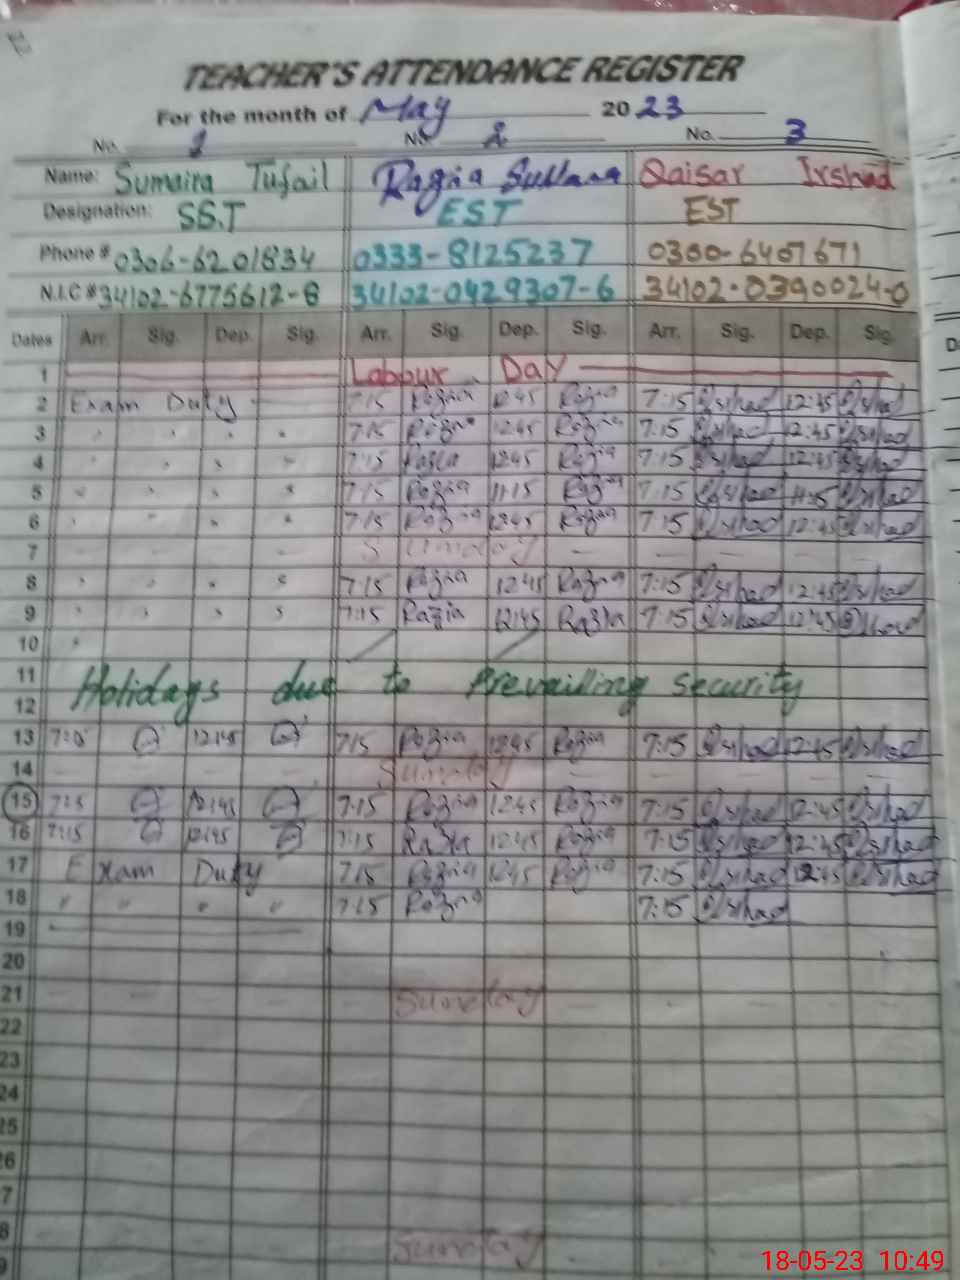 TEACHER'S ATTENDANCE REGISTER
For the month of May 2023
No. 1 No. 2 No. 3
Name: Sumaira Tufail Razia Sultana Qaisar Irshad
Designation: SS.T EST EST
Phone # 0306-6201834 0333-8125237 0300-6407671
N.I.C # 34102-6775612-8 34102-0429307-6 34102-0390024-0
Dates Arr. Sig. Dep. Sig. Arr. Sig. Dep. Sig. Arr. Sig. Dep. Sig.
1 Labour Day
2 Exam Duty 7:15 Razia 12:45 Razia 7:15 Irshad 12:45 Irshad
3 7:15 Razia 12:45 Razia 7:15 Irshad 12:45 Irshad
4 7:15 Razia 12:45 Razia 7:15 Irshad 12:45 Irshad
5 7:15 Razia 11:15 Razia 7:15 Irshad 11:15 Irshad
6 7:15 Razia 12:45 Razia 7:15 Irshad 12:45 Irshad
7 Sunday
8 7:15 Razia 12:45 Razia 7:15 Irshad 12:45 Irshad
9 7:15 Razia 12:45 Razia 7:15 Irshad 12:45 Irshad
10
11 Holidays due to Prevailling security
12
13 12:45 7:15 Razia 12:45 Razia 7:15 Irshad 12:45 Irshad
14 Sunday
15 7:15 12:45 7:15 Razia 12:45 Razia 7:15 Irshad 12:45 Irshad
16 7:15 12:45 7:15 Razia 12:45 Razia 7:15 Irshad 12:45 Irshad
17 Exam Duty 7:15 Razia 12:45 Razia 7:15 Irshad 12:45 Irshad
18 " " " " 7:15 Razia 7:15 Irshad
19
20
21 Sunday
22
23
24
25
26
7
8 Sunday
9
18-05-23 10:49